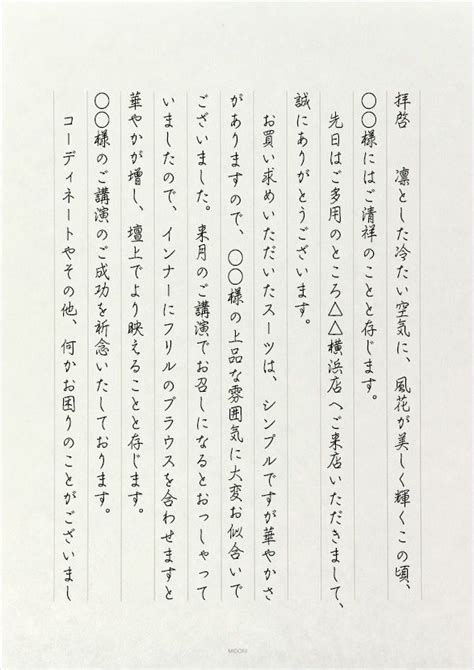 拝啓　凛とした冷たい空気に、風花が美しく輝くこの頃、
〇〇様にはご清祥のことと存じます。
先日はご多用のところ△△横浜店へご来店いただきまして、
誠にありがとうございます。
お買い求めいただいたスーツは、シンプルですが華やかさ
がありますので、〇〇様の上品な雰囲気に大変お似合いで
ございました。来月のご講演でお召しになるとおっしゃって
いましたので、インナーにフリルのブラウスを合わせますと
華やかが増し、壇上でより映えることと存じます。
〇〇様のご講演のご成功を祈念いたしております。
コーディネートやその他、何かお困りのことがございまし
MIDORI